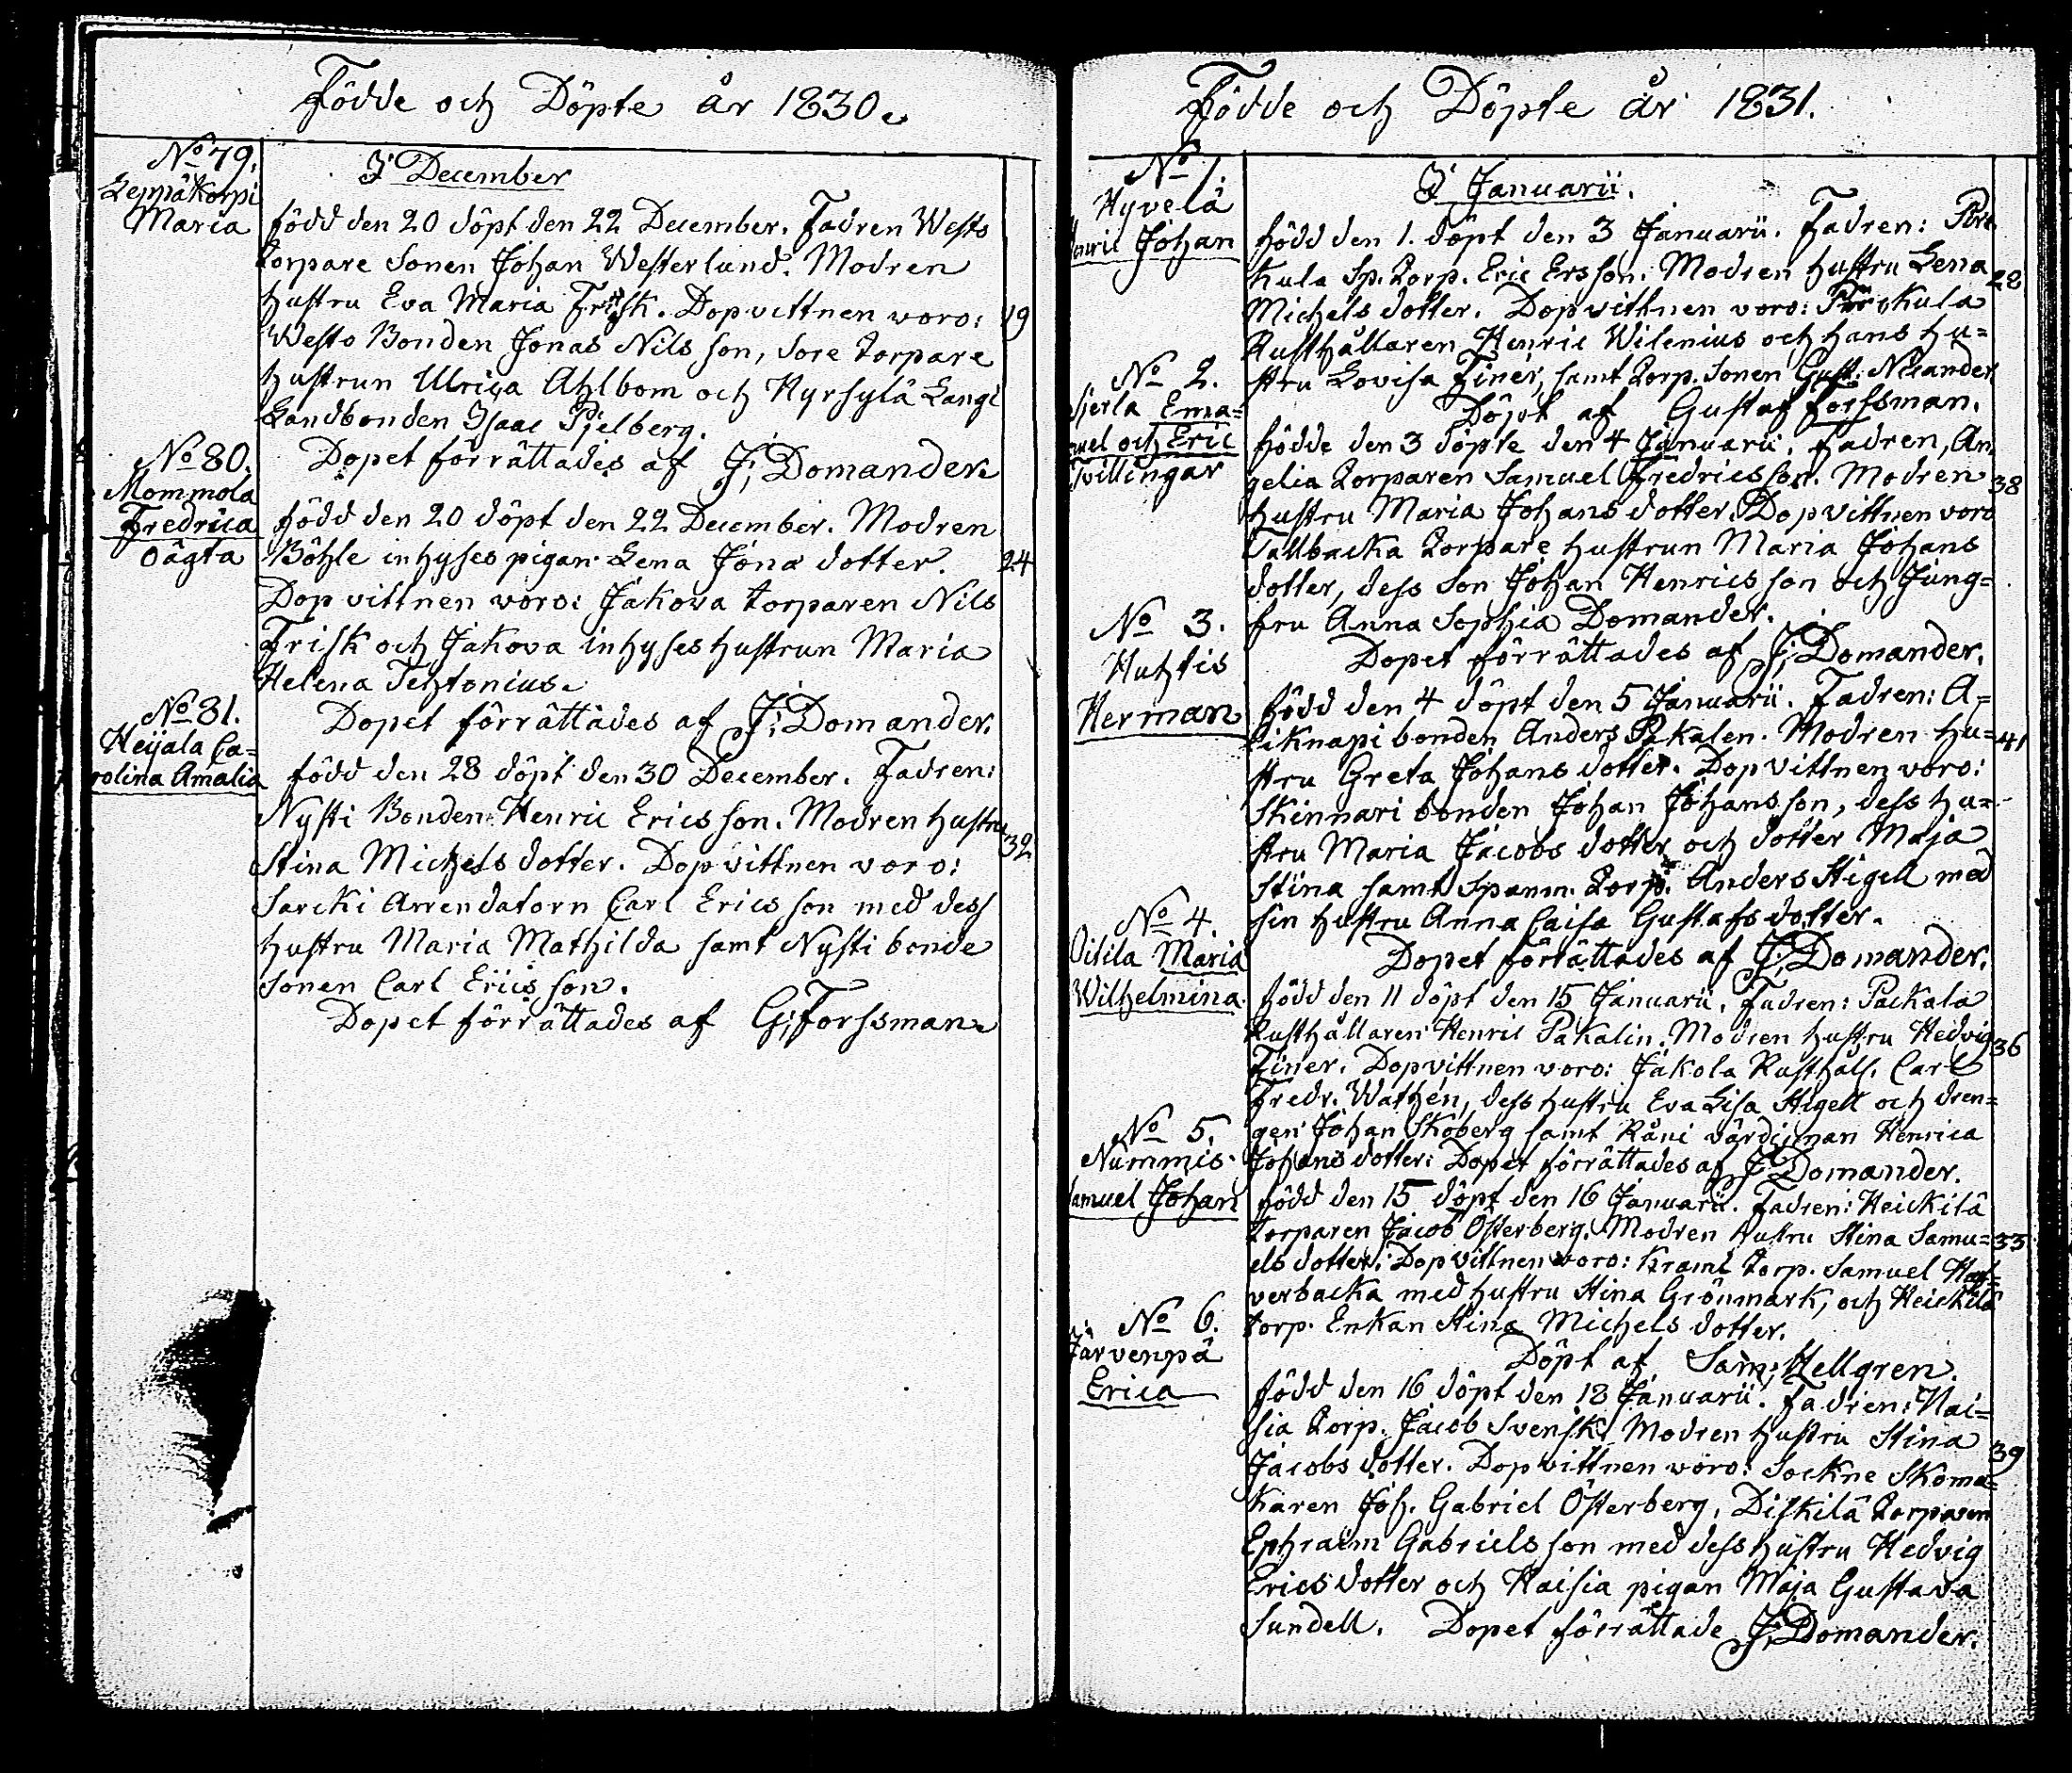 Födde och Döpte år 1830.
No 79.
Leppäkorpi
Maria
I December
född den 20 döpt den 22 December. Fadren Westo
torpare Sonen Johan Westerlund. Modren
hustru Eva Maria Frisk. Dopvittnen woro: 19
Westo Bonden Jonas Nils son, Sore torpare
hustrun Ulrica Ahlbom och Hyrsylä Langi
Landbonden Isaac Pjelberg.
Dopet förrättades af J: Domander.
No 80.
Mommola
Fredrica
oägta
född den 20 döpt den 22 December. Modren
Böhle inhyses pigan Lena Jona dotter. 24
Dop vittnen woro: Jakova torparen Nils
Frisk och Jakova inhyses hustrun Maria
Helena Tehtonius.
Dopet förrättades af J: Domander.
No 81.
Heijala Ca=
rolina Amalia
född den 28 döpt den 30 December. Fadren:
Nysti Bonden Henric Erics son. Modren hustru
Stina Michels dotter. Dop vittnen voro: 32
Sarcki Arrendatorn Carl Erics son med dess
hustru Maria Mathilda samt Nysti bonde
Sonen Carl Erics son.
Dopet förrättades af G: Forssman.
Födde och Döpte år 1831.
No 1.
Hyvelä
Henric Johan
I Januarii.
född den 1. döpt den 3 Januarii. Fadren: Pör
kula Sp. Torp. Eric Ersson. Modren hustru Lena 28
Michels dotter. Dopvittnen voro: Pörkula
Rusthållaren Henric Wilenius och hans hu=
stru Lovisa Finér, samt Torp. Sonen Gust: Nisander
Döpt af Gustaf Forssman.
No 2.
Sjerla Ema=
nuel och Eric
Tvillingar
födde den 3 döpte den 4 Januarii. Fadren, An
gelia Torparen Samuel Fredricsson. Modren 38
hustru Maria Johans dotter. Dopvittnen voro
Tallbacka Torpare hustrun Maria Johans
dotter, dess son Johan Henrics son och Jung=
fru Anna Sophia Domander.
Dopet förrättades af J: Domander.
No 3.
Huhtis
Herman
född den 4 döpt den 5 Januarii. Fadren: A=
liknapi bonden Anders Pakalen. Modren hu= 41
stru Greta Johans dotter. Dopvittnen voro:
Skinnari bonden Johan Johansson, dess hu=
stru Maria Jacobs dotter och dotter Maja
Stina samt Spanm. Torp. Anders Stigell med
sin hustru Anna Caisa Gustafs dotter.
Dopet förrättades af J: Domander.
No 4.
Oitila Maria
Wilhelmina
född den 11 döpt den 15 Januarii. Fadren: Packala
Rusthållaren Henric Pakalin. Modren hustru Hedvig 36
Finer. Dopvittnen voro: Jakola Rusthåll. Carl
Fredr. Wathén, dess hustru Eva Lisa Stigell och dren=
gen Johan Skoberg samt Råni värdinnan Henrica
Johans dotter: Dopet förrättades af J: Domander.
No 5.
Nummis
Samuel Johan
född den 15 döpt den 16 Januarii. Fadren: Heickilä
torparen Jacob Österberg. Modren hustru Stina Samu= 33
els dotter. Dopvittnen woro: Kraml torp. Samuel Haf=
verbacka med hustru Stina Grönmark, och Heickilä
torp. Enkan Stina Michels dotter.
Döpt af Sam: Hellgren.
No 6.
Järvenpä
Erica
född den 16 döpt den 18 Januarii. Fadren: Hai=
sia Torp. Jacob Svensk. Modren hustru Stina
Jacobs dotter. Dopvittnen woro: Sockne Skoma= 39
karen Joh. Gabriel Österberg, Diskilä Torparen
Ephraim Gabriels son med dess hustru Hedvig
Erics dotter och Haisia pigan Maja Gustava
Sundell. Dopet förrättade J: Domander.